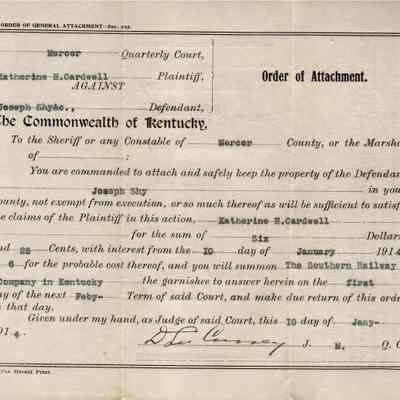 ORDER OF GENERAL ATTACHMENT
Mercer Quarterly Court,
Katherine H.Cardwell Plaintiff,
AGAINST
Joseph Shy&c., Defendant,
Order of Attachment.
The Commonwealth of Kentucky,
To the Sheriff or any Constable of Mercer County, or the Marsha
of :
You are commanded to attach and safely keep the property of the Defendan
Joseph Shy in you
ounty, not exempt from execution, or so much thereof as will be sufficient to satisf
e claims of the Plaintiff in this action, Katherine H.Cardwell
for the sum of Six Dollar
nd 25 Cents, with interest from the 10 day of January 1914
6 for the probable cost thereof, and you will summon The Southern Railway
Company in Kentucky the garnishee to answer herein on the first
ay of the next Feby- Term of said Court, and make due return of this orde
that day.
Given under my hand, as Judge of said Court, this 10 day of Jany-
91 4.
J. M. Q. C
Herald Print.